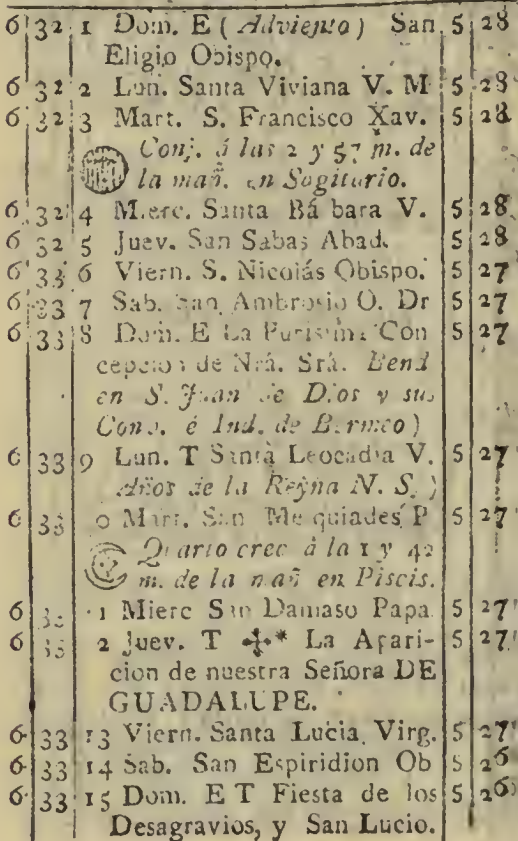 6 32 1 Dom. E (Adviento) San 5 28
Eligio Obispo.
6 32 2 Lun. Santa Viviana V. M 5 28
6 32 3 Mart. S. Francisco Xav. 5 28
Conj. á las 2 y 57 m. de
la mañ. en Sagitario.
6 32 4 Mierc. Santa Bá bara V. 5 28
6 32 5 Juev. San Sabas Abad. 5 28
6 33 6 Viern. S. Nicolás Obispo. 5 27
6 33 7 Sab. San Ambrosio O. Dr 5 27
6 33 8 Dom. E La Purisima Con
5 27
cepcion de Nrá. Srá. Bend
en S. Juan de Dios y sus
Conv. é Ind. de Bermeo)
6 33 9 Lun. T Santa Leocadia V. 5 27
Años de la Reyna N. S.)
6 33 0 Mart. San Me quiades P 5 27
Quarto crec á la 1 y 42
m. de la mañ en Piscis.
6 1 Mierc San Damaso Papa 5 27
6 2 Juev. T ✠* La Apari-
5 27
cion de nuestra Señora DE
GUADALUPE.
6 33 13 Viern. Santa Lucia Virg. 5 27
6 33 14 Sab. San Espiridion Ob 5 26
6 33 15 Dom. E T Fiesta de los 5 26
Desagravios, y San Lucio.